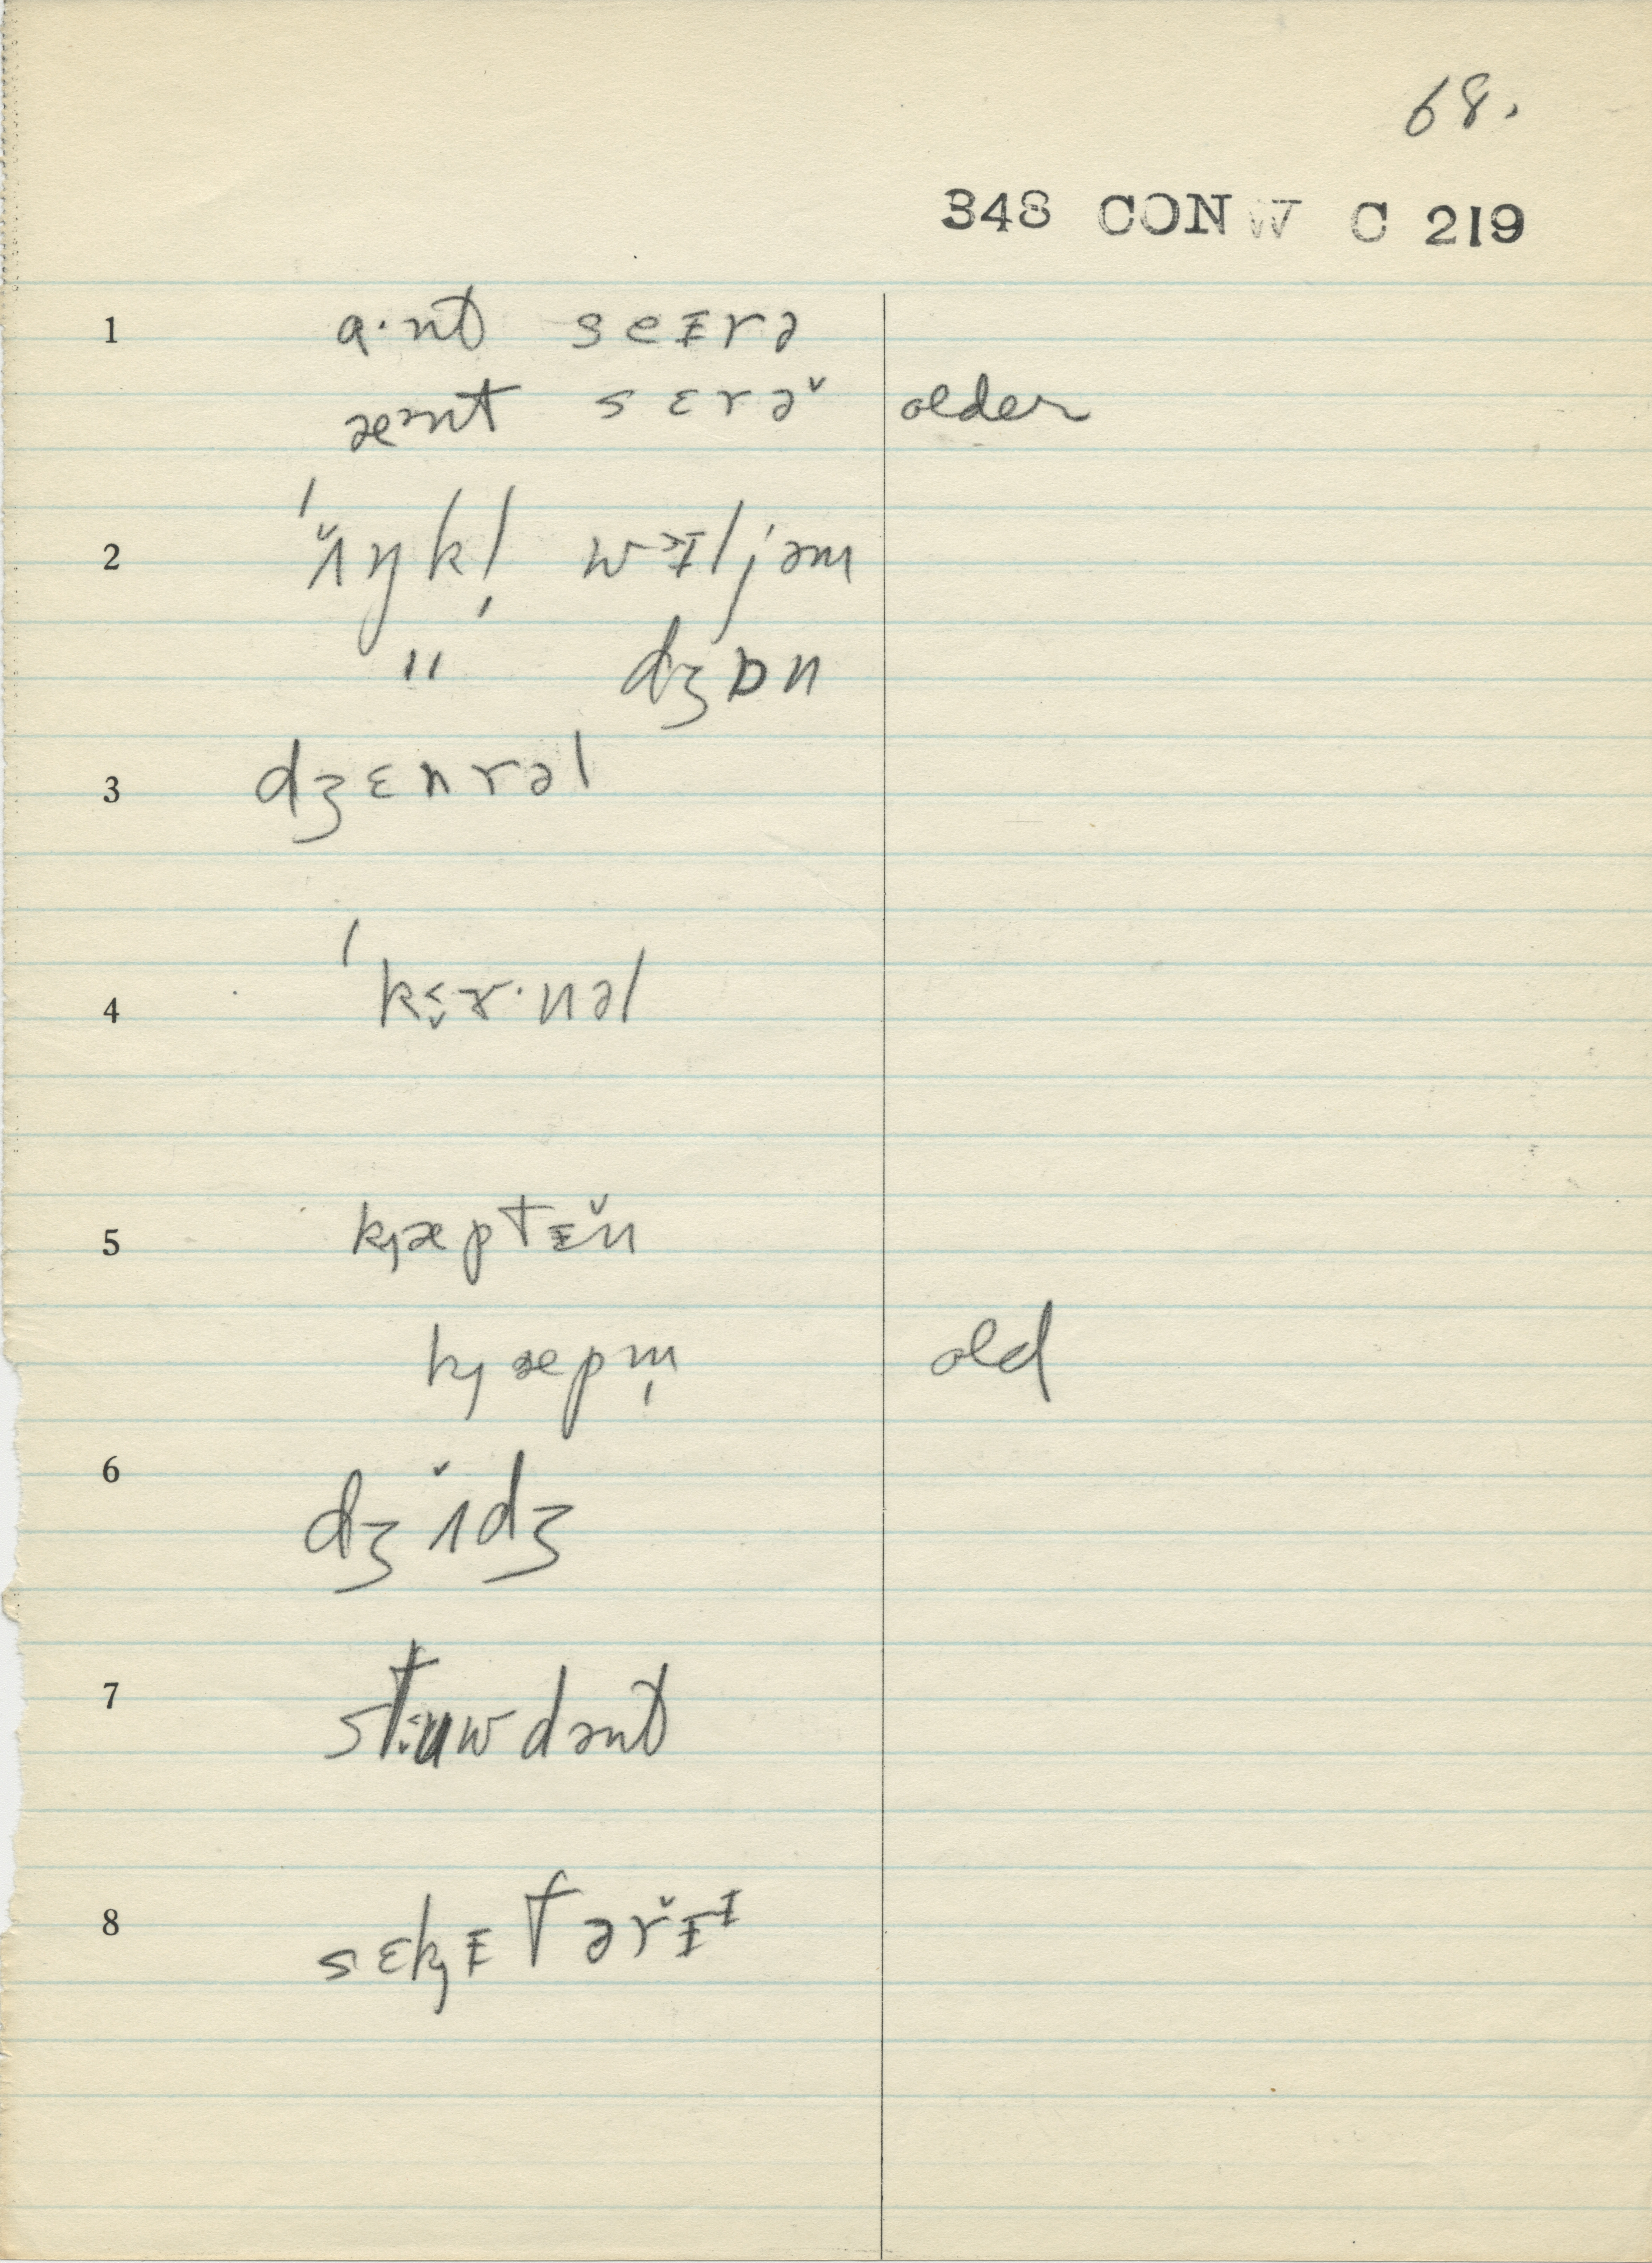 68.
348 CONW C 219
1 a·nt seɪrə
æᵊnt sɛrə̌ older
2 ˈʌ̌ŋkl̩ wᵊɪljəm
" dʒɒn
3 dʒɛnrəl
4 ˈkɜ̬ɤ·nəl
5 k̟æptɪ̌n
k̟æpm̩ old
6 dʒʌ̌dʒ
7 stʉwdənt
8 sɛk̟ɪtərɪ̌ᶦ